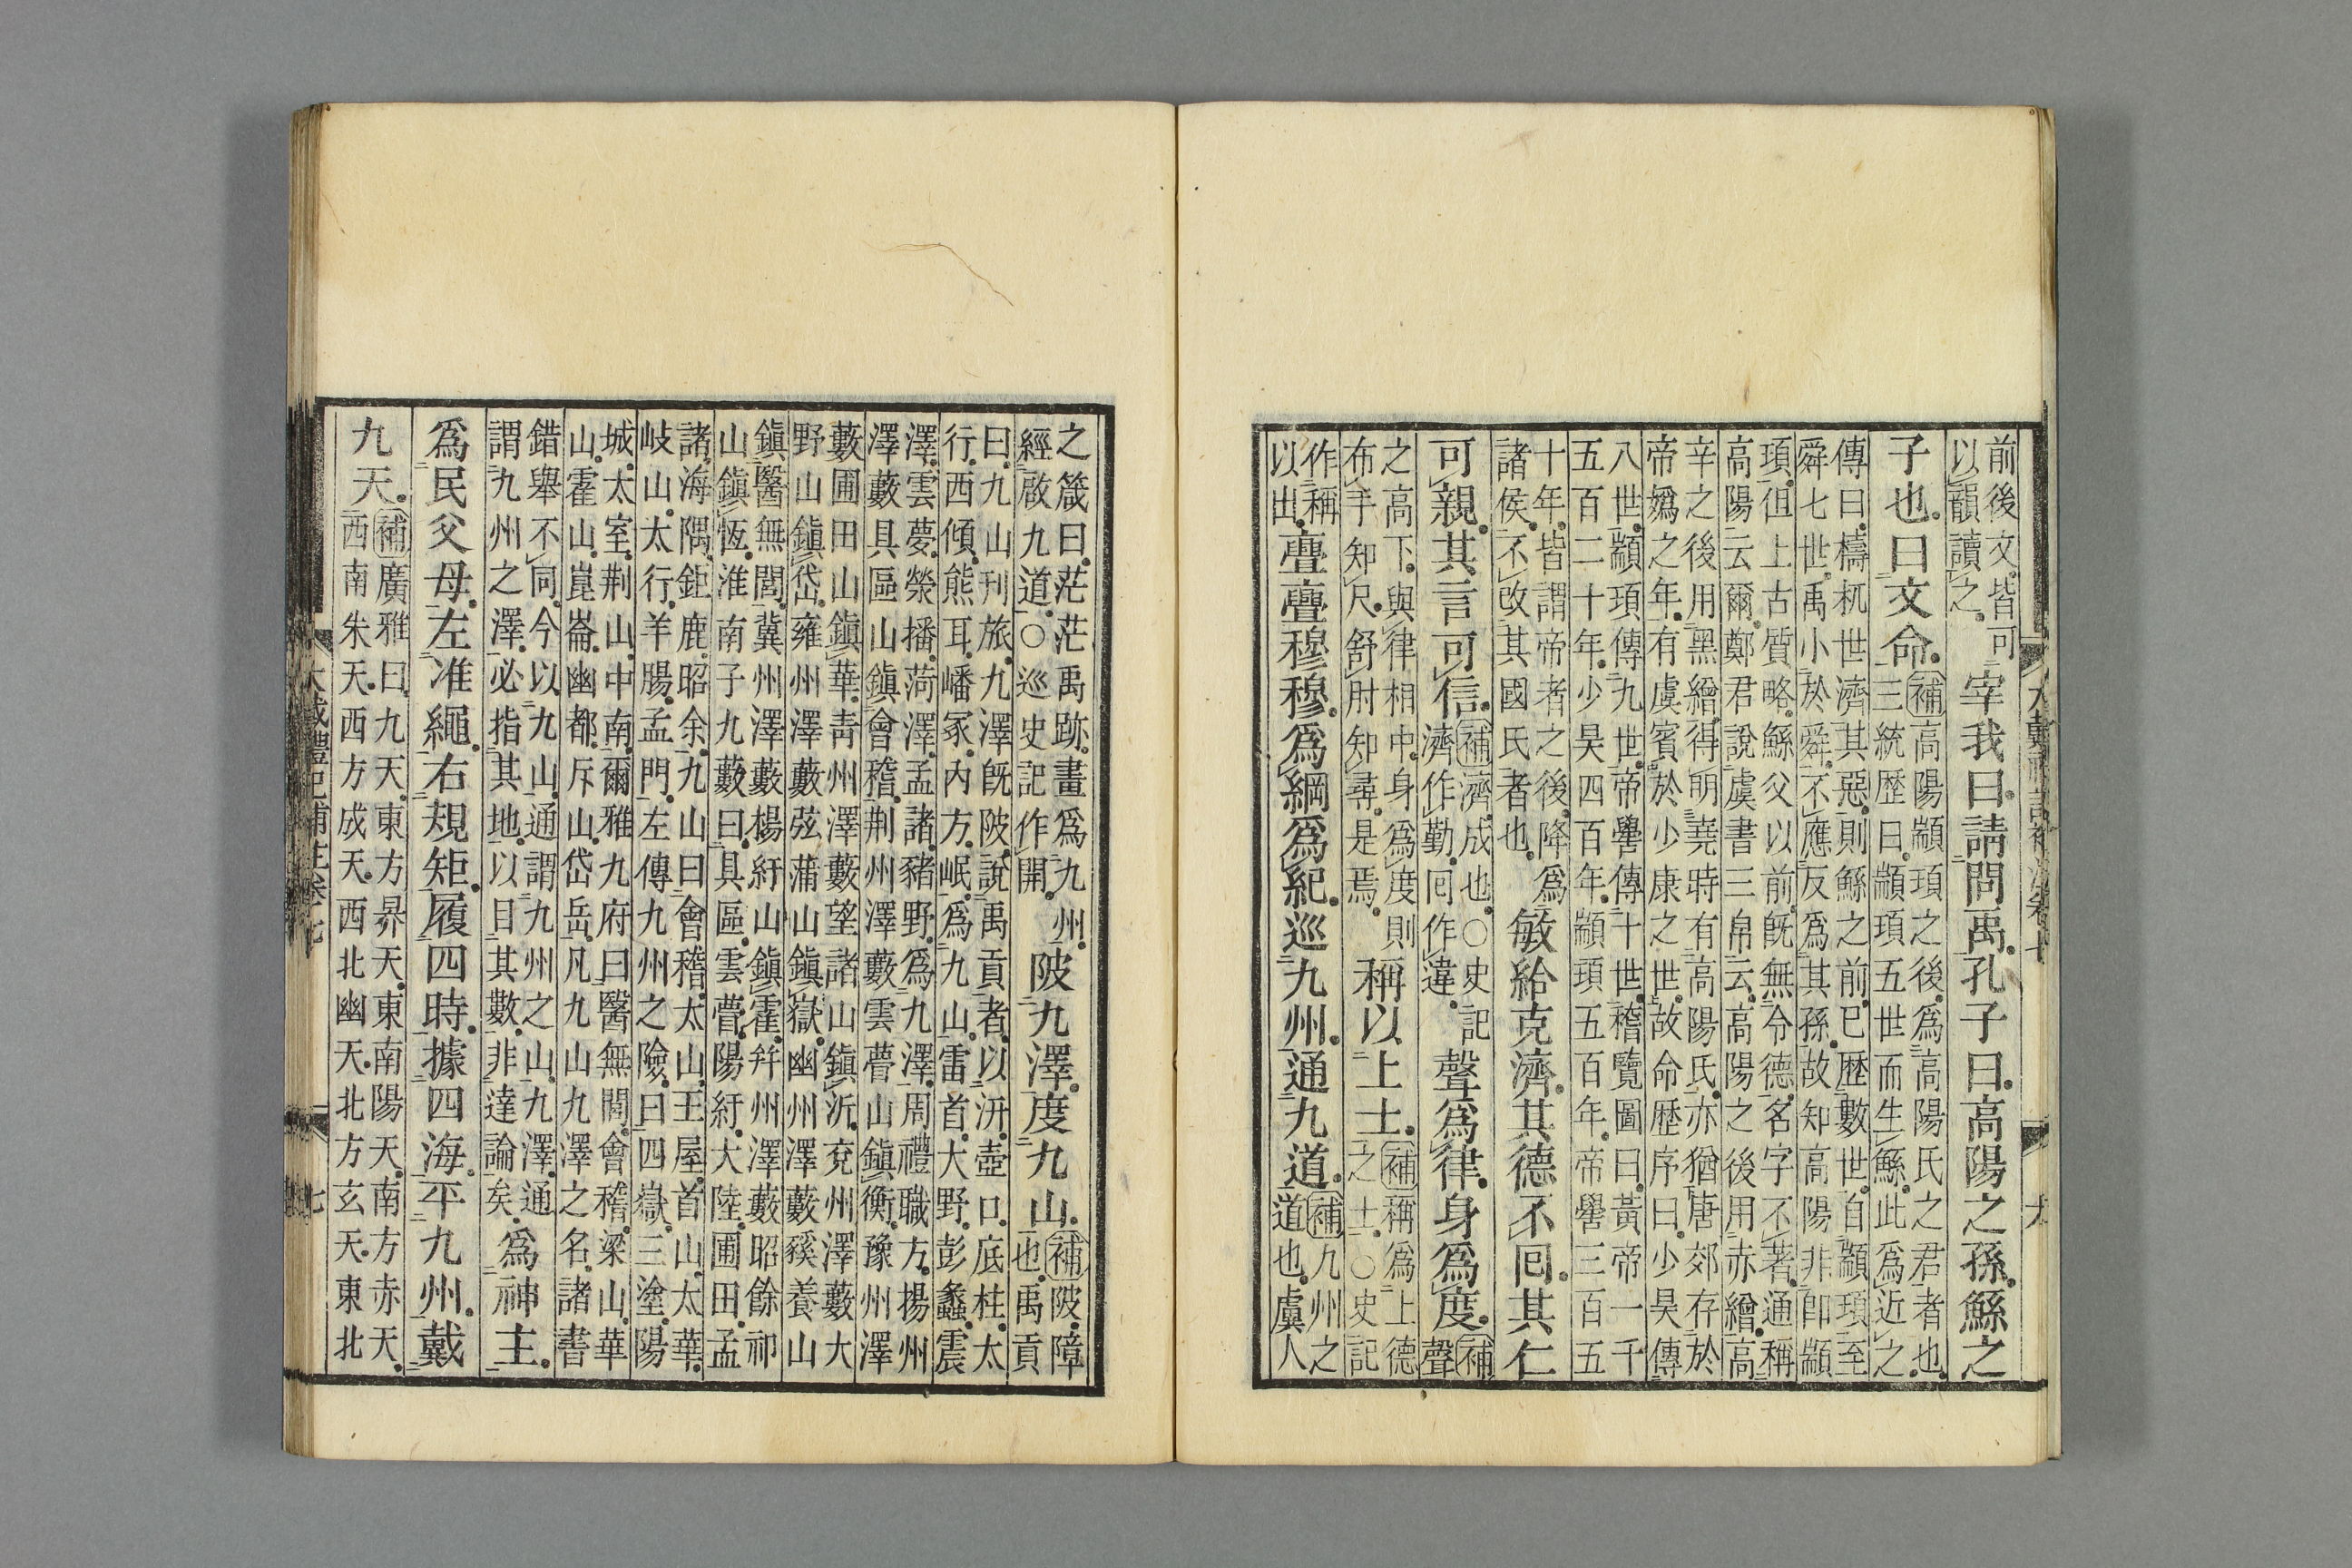 前後文皆可
以韻讀之
宰我曰請問禹孔子曰高陽之孫鯀之
子也曰文命
補高陽顓頊之後爲高陽氏之君者也
三統歷曰顓頊五世而生鯀此爲近之
傳曰檮杌世濟其惡則鯀之前已歷數世自顓頊至
舜七世禹小於舜不應反爲其孫故知高陽非卽顓
頊伹上古質略鯀父以前旣無令德名字不著通稱
高陽云爾鄭君說虞書三帛云高陽之後用赤繒高
辛之後用黑繒得明堯時有高陽氏亦猶唐郊存於
帝嬀之年有虞賓於少康之世故命歷序曰少昊傳
八世顓頊傳九世帝嚳傳十世稽覽圖曰黃帝一千
五百二十年少昊四百年顓頊五百年帝嚳三百五
十年皆謂帝者之後降爲
諸侯不改其國氏者也
敏給克濟其德不回其仁
可親其言可信
補濟成也○史記
濟作勤回作違
聲爲律身爲度
補
聲
之高下與律相中身爲度則
布手知尺舒肘知尋是焉
稱以上士
補稱爲上德
之士○史記
作稱
以出
亹亹穆穆爲綱爲紀巡九州通九道
補九州之
道也虞人
之箴曰茫茫禹跡畫爲九州
經啟九道○巡史記作開
陂九澤度九山
補陂障
也禹貢
曰九山刊旅九澤旣陂說禹貢者以汧壺口底柱太
行西傾熊耳嶓冢內方岷爲九山雷首大野彭蠡震
澤雲夢滎播菏澤孟諸豬野爲九澤周禮職方揚州
澤藪具區山鎭會稽荆州澤藪雲瞢山鎭衡豫州澤
藪圃田山鎭華靑州澤藪望諸山鎭沂兗州澤藪大
野山鎭岱雍州澤藪弦蒲山鎭嶽幽州澤藪豯養山
鎭醫無閭冀州澤藪楊紆山鎭霍幷州澤藪昭餘祁
山鎭恆淮南子九藪曰具區雲瞢陽紆大陸圃田孟
諸海隅鉅鹿昭余九山曰會稽太山王屋首山太華
岐山太行羊腸孟門左傳九州之險曰四嶽三塗陽
城太室荆山中南爾雅九府曰醫無閭會稽梁山華
山霍山崑崙幽都斥山岱岳凡九山九澤之名諸書
錯舉不同今以九山通謂九州之山九澤通
謂九州之澤必指其地以日其數非達論矣
爲神主
爲民父母左准繩右規矩履四時據四海平九州戴
九天
補廣雅曰九天東方昦天東南陽天南方赤天
西南朱天西方成天西北幽天北方玄天東北
大戴禮記補注卷七
七